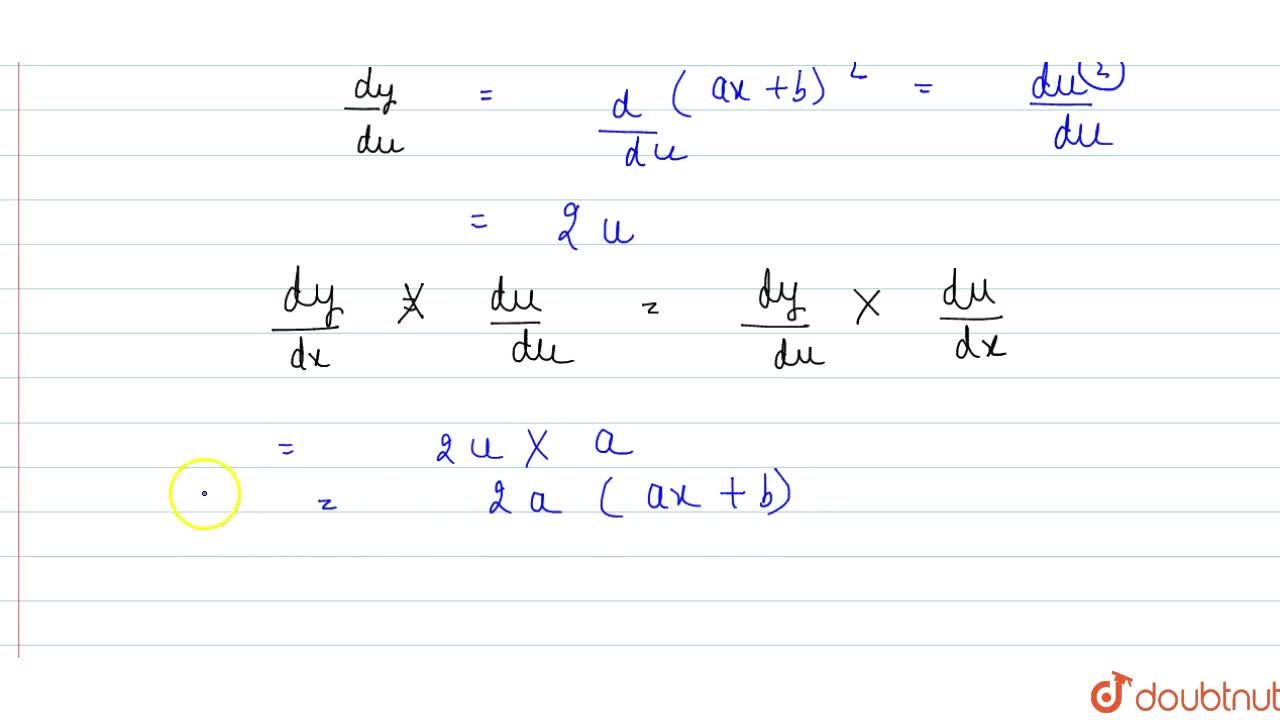 dy/du = d/du (ax + b)² = du²/du
= 2u
dy/dx × du/du = dy/du × du/dx
= 2u × a
= 2a (ax + b)
doubtnut